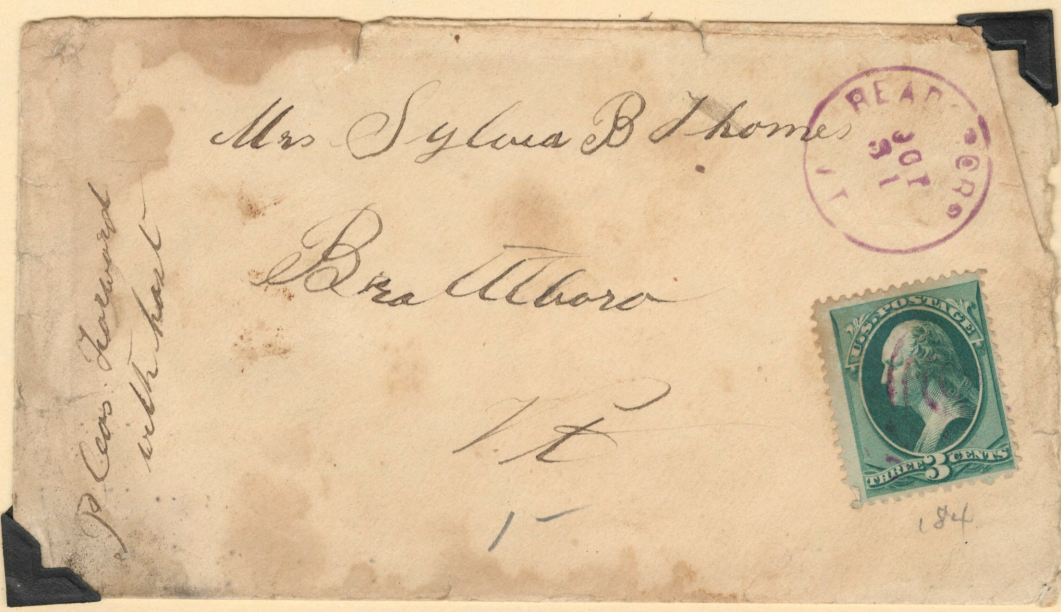 Mrs Sylvia B Thomes
Brattlboro
Vt
pleas forward
with hast
READ
OCT
31
U.S. POSTAGE
THREE 3 CENTS
184